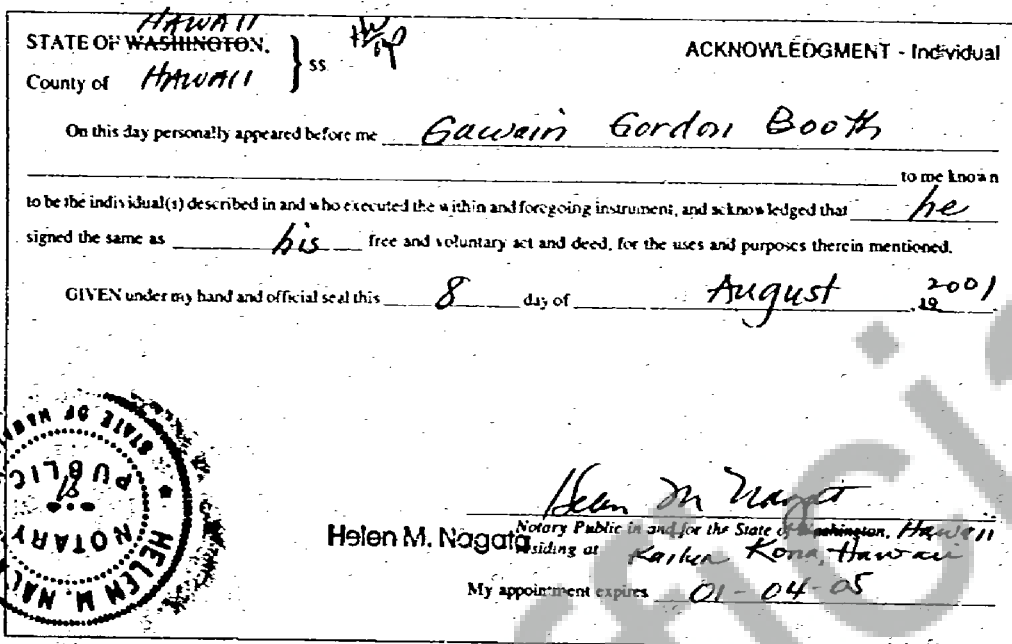 HAWAII
STATE OF WASHINGTON, } ss ACKNOWLEDGMENT - Individual
County of HAWAII
On this day personally appeared before me Gawain Gordon Booth
to me known
to be the individual(s) described in and who executed the within and foregoing instrument, and acknowledged that he
signed the same as his free and voluntary act and deed, for the uses and purposes therein mentioned.
GIVEN under my hand and official seal this 8 day of August, 19 2001.
HELEN M. NAGATA
STATE OF HAWAII
NOTARY PUBLIC
Helen M Nagata
Helen M. Nagata Notary Public in and for the State of Washington, Hawaii
residing at Kailua Kona, Hawaii
My appointment expires 01-04-05